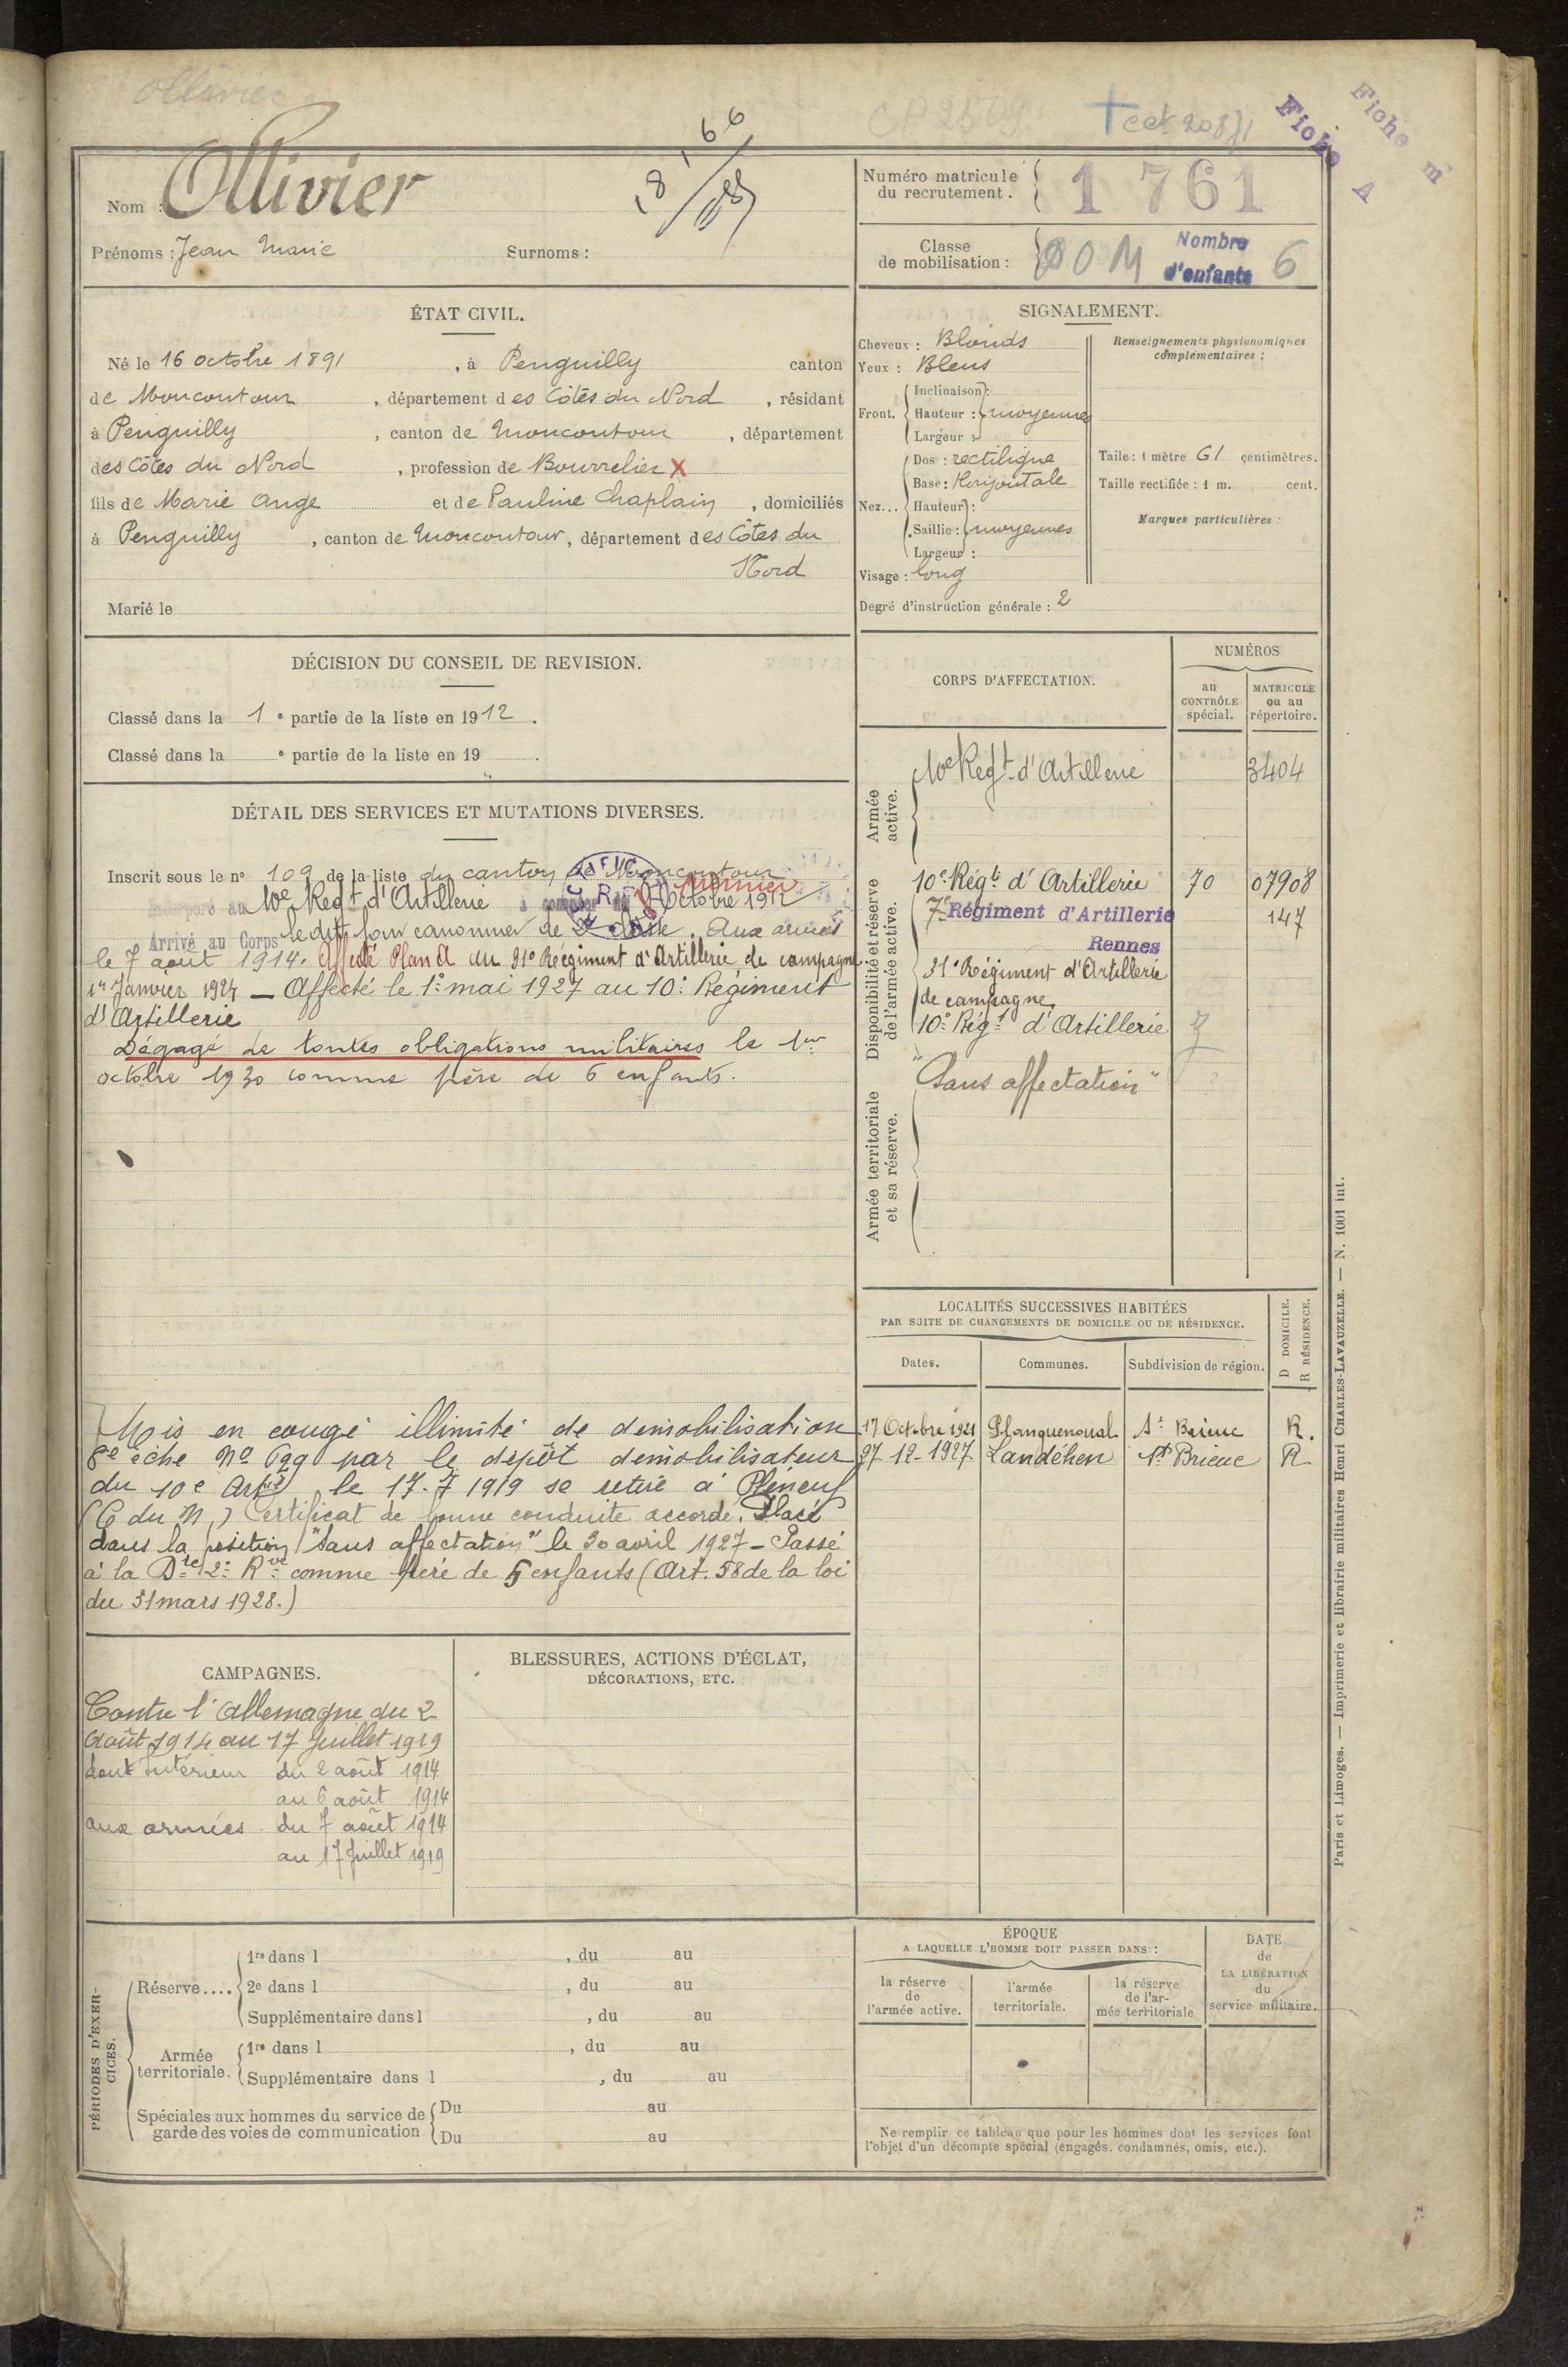 Ollivier
+ cck 20871
CP 2579
Fiche A
Fiche m
Nom : Ollivier
Prénoms : Jean Marie
Surnoms :
Numéro matricule du recutement . 1 761
Classe de mobilisation :
Nombre d'enfants 6
ÉTAT CIVIL.
Né le 16 octobre 1891, à Penguilly canton
de Moncontour, département des Côtes du Nord, résidant
à Penguilly, canton de Moncontour, département
des Côtes du Nord, profession de Bourrelier X
fils de Marie Ange et de Pauline Chaplain, domiciliés
à Penguilly, canton de Moncontour, département des Côtes du
Nord
Marié le
SIGNALEMENT.
Cheveux : Blonds
Yeux : Bleus
Front. Inclinaison :
Hauteur : moyennes
Largeur :
Nez... Dos : rectiligne
Base : Horizontale
Hauteur :
Saillie : moyennes
Largeur :
Visage : long
Degré d'instruction générale : 2
Renseignements physionomiques complémentaires :
Taille : 1 mètre 61 centimètres.
Taille rectifiée : 1 m. cent.
Marques particulières :
DÉCISION DU CONSEIL DE REVISION.
Classé dans la 1e partie de la liste en 1912.
Classé dans la e partie de la liste en 19 .
DÉTAIL DES SERVICES ET MUTATIONS DIVERSES.
Inscrit sous le n° 109 de la liste du canton de Moncontour
Incorporé au 10e Regt d'Artillerie à compter du Octobre 1912
Arrivé au Corps le dit jour canonnier de 2e classe. Aux armées
le 7 août 1914. Affecté Plan A au 31e Régiment d'Artillerie de campagne
1er Janvier 1924 — Affecté le 1er mai 1927 au 10e Régiment
d'Artillerie
Dégagé de toutes obligations militaires le 1er
octobre 1930 comme père de 6 enfants.
Mis en congé illimité de démobilisation
8e éche N° 629 par le dépôt démobilisateur
du 10e Artie le 17.7 1919 se retire à Pléneuf
(C du N.) Certificat de bonne conduite accordé. Placé
dans la position "Sans affectation" le 30 avril 1927 — Passé
à la Dte 2e Rve comme père de 5 enfants (Art. 58 de la loi
du 31 mars 1928.)
CORPS D'AFFECTATION.
NUMÉROS
au CONTRÔLE spécial.
MATRICULE ou au répertoire.
Armée active.
10e Regt d'Artillerie 3404
Disponibilité et réserve de l'armée active.
10e Régt d'Artillerie 70 07908
7e Régiment d'Artillerie 147
Rennes
31e Régiment d'Artillerie
de campagne
10e Régt d'Artillerie
Armée territoriale et sa réserve.
"Sans affectation"
LOCALITÉS SUCCESSIVES HABITÉES
PAR SUITE DE CHANGEMENTS DE DOMICILE OU DE RÉSIDENCE.
Dates. Communes. Subdivision de région. D DOMICILE. R RÉSIDENCE.
17 Octobre 1921 Planguenoual St Brieuc R.
27-12-1927 Landéhen St Brieuc R
CAMPAGNES.
Contre l'Allemagne du 2
Août 1914 au 17 Juillet 1919
dont Intérieur du 2 août 1914
au 6 août 1914
aux armées du 7 août 1914
au 17 Juillet 1919
BLESSURES, ACTIONS D'ÉCLAT,
DÉCORATIONS, ETC.
PÉRIODES D'EXERCICES.
Réserve.... 1re dans l , du au
2e dans l , du au
Supplémentaire dans l , du au
Armée territoriale. 1re dans l , du au
Supplémentaire dans l , du au
Spéciales aux hommes du service de garde des voies de communication Du au
Du au
ÉPOQUE
A LAQUELLE L'HOMME DOIT PASSER DANS :
la réserve de l'armée active.
l'armée territoriale.
la réserve de l'armée territoriale
DATE de LA LIBÉRATION du service militaire.
Ne remplir ce tableau que pour les hommes dont les services font
l'objet d'un décompte spécial (engagés, condamnés, omis, etc.).
Paris et Limoges. — Imprimerie et librairie militaires Henri CHARLES-LAVAUZELLE. — N. 1001 int.